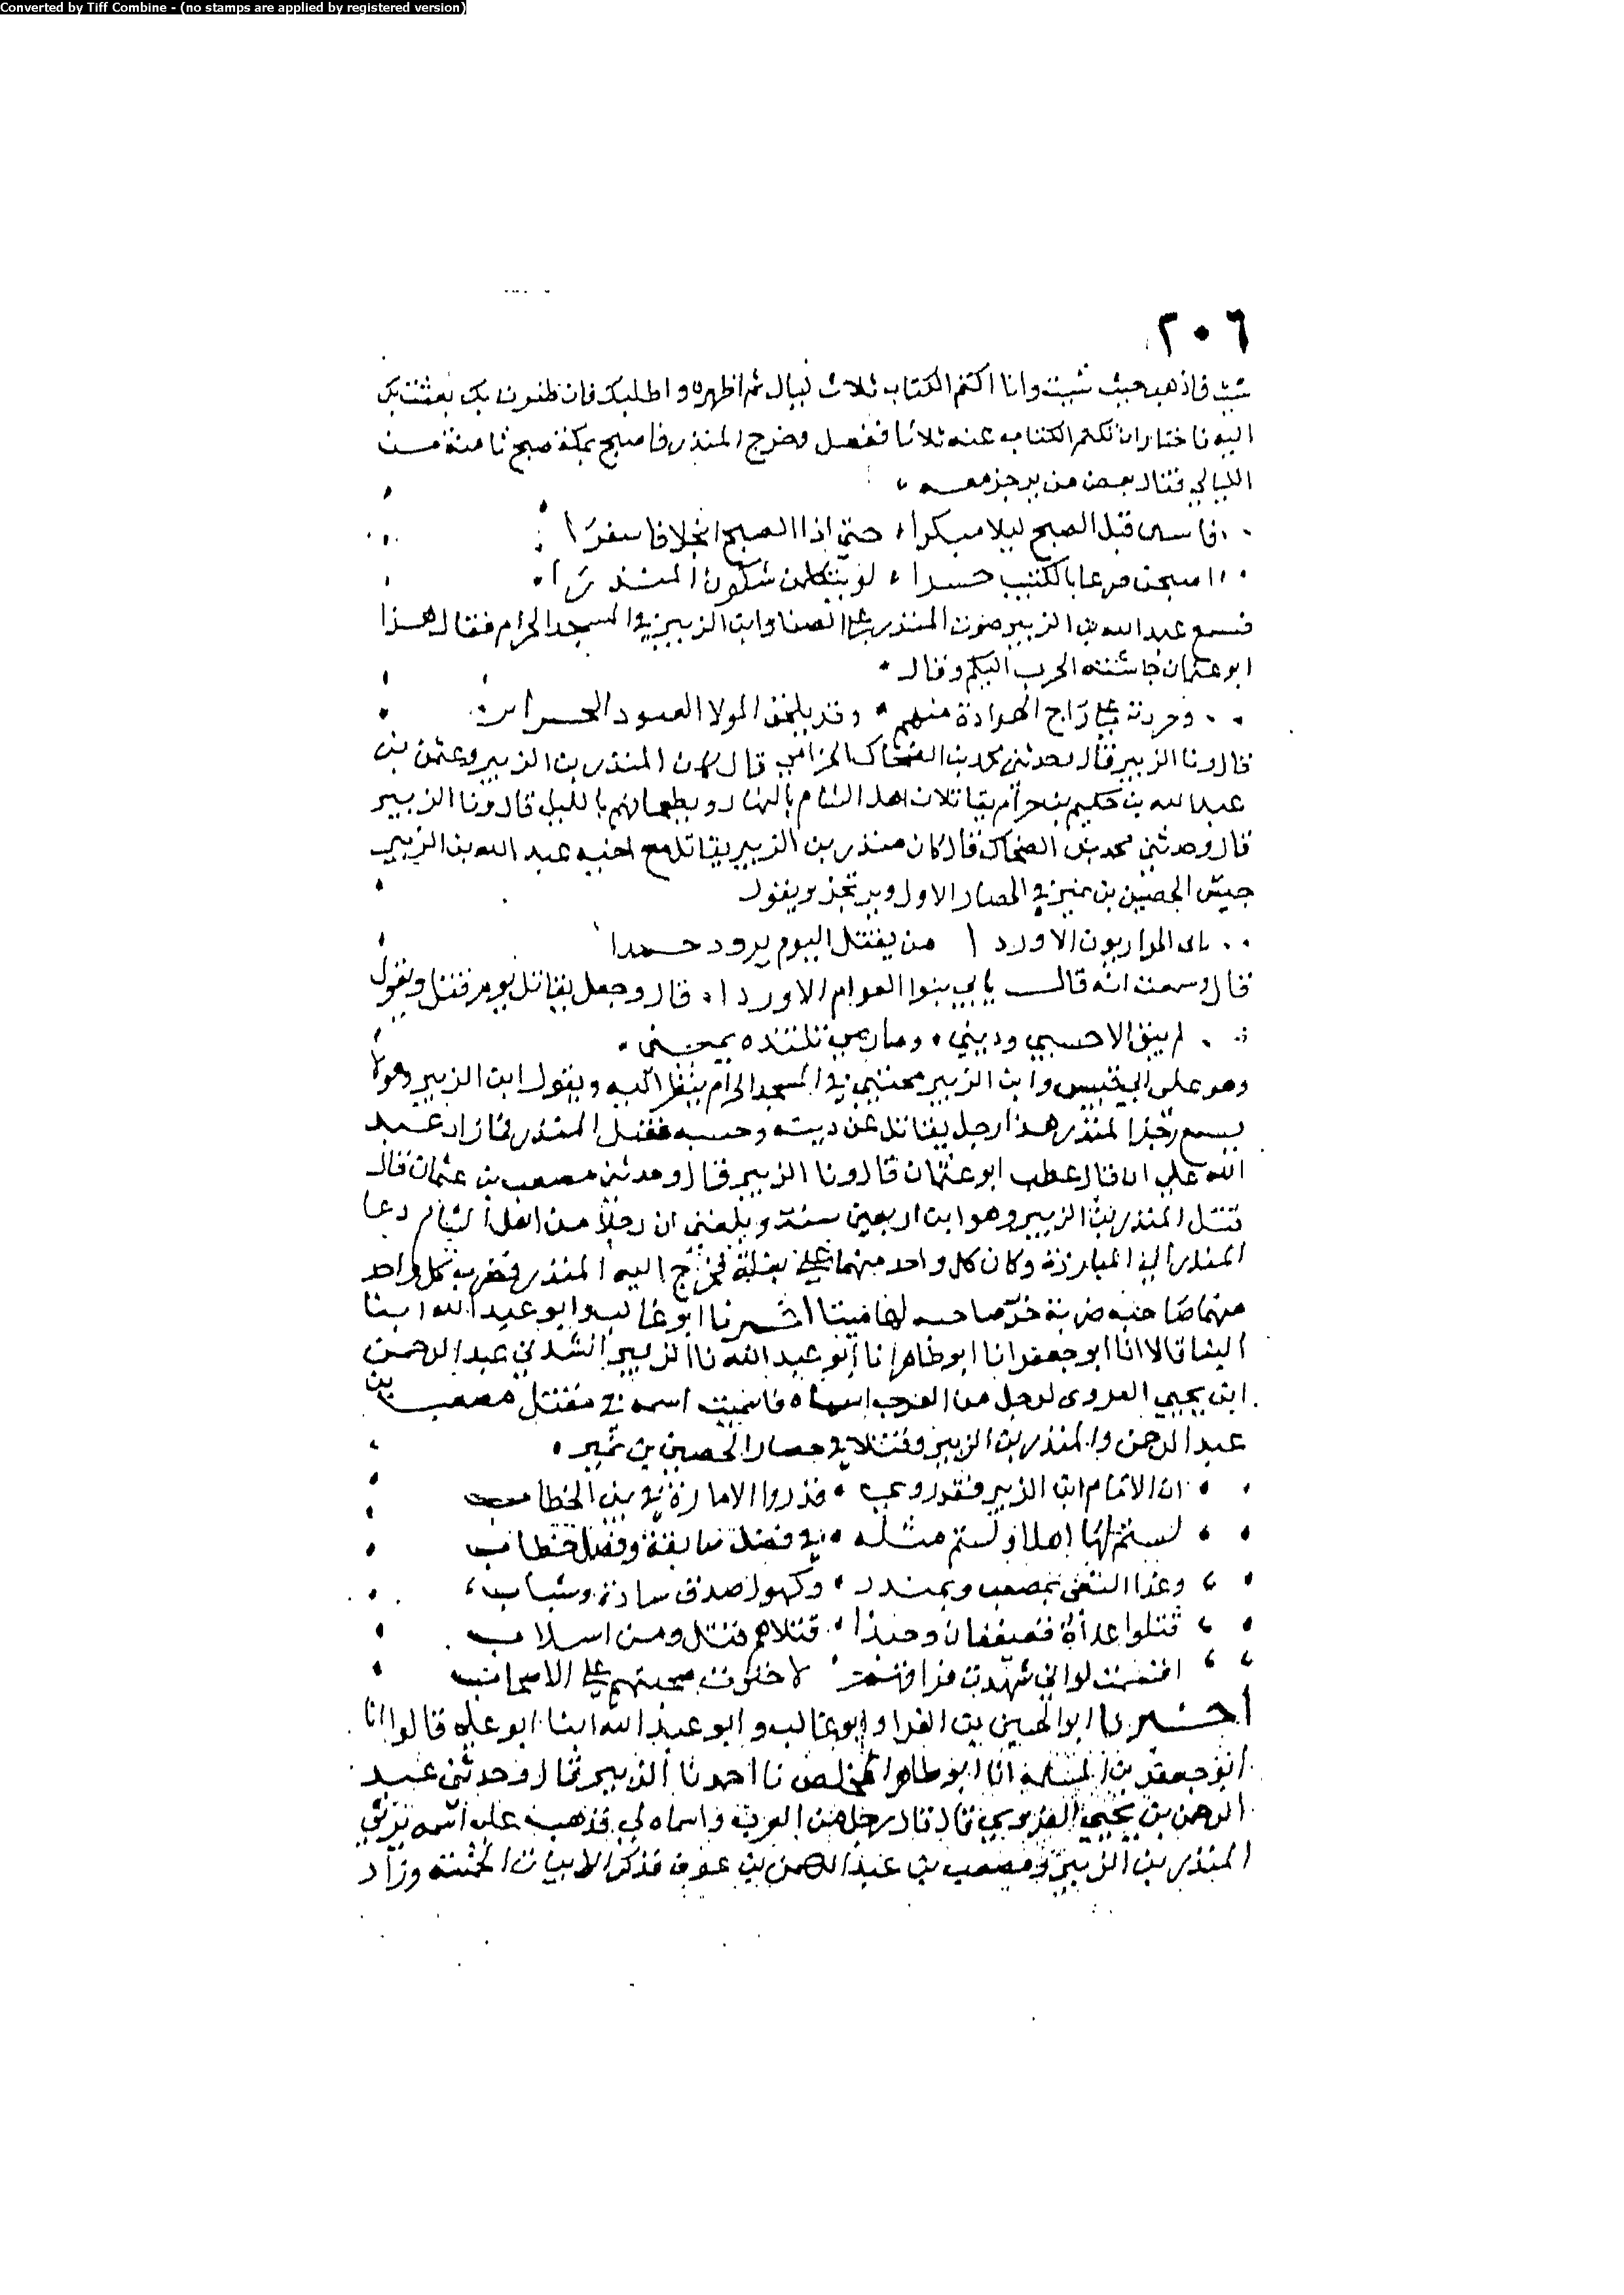 Converted by Tiff Combine - (no stamps are applied by registered version)
٢٠٦
شئت فاذهب حيث شئت وانا اكتم الكتاب ثلاث ليال ثم اظهره واطلبك فان ظفرت بك بعثت بك
اليه فاختار ان تكتم الكتاب عنه ثلاثا ففعل وخرج المنذر فاصبح بمكة صبح ثامنة من
الليالي فقال بعض من يرجز معه
قاسى قبل الصبح ليلا مبكرا حتى اذا الصبح انجلا فاسفرا
اصبحن صرعا بالكثيب حسرا لو يتكلمن شكون المنذرا
فسمع عبد الله بن الزبير صوت المنذر على الصفا وابن الزبير في المسجد الحرام فقال هذا
ابو عثمان جاشته الحرب اليكم وقال
على راج الهوادة منهم وقد يلحق المولا العنود الجراير
قال ونا الزبير قال وحدثني محمد بن الضحاك الحزامي قال كان المنذر بن الزبير وعثمن بن
عبد الله بن حكيم بن حزام يقاتلان اهل الشام بالنهار ويطعمانهم بالليل قال ونا الزبير
قال وحدثني محمد بن الضحاك قال كان منذر بن الزبير يقاتل مع اخيه عبد الله بن الزبير
جيش الحصين بن نمير في الحصار الاول ويرتجز ويقول
الاوردا من يقتل اليوم يرود حمدا
قال وسمعت انه قال يابي بنوا العوام الاوردا قال وجعل يقاتل يوم قتل ويقول
لم يبق الا حسبي وديني وصارم تلتذه يميني
وهو على ابي قبيس وابن الزبير محتبي في المسجد الحرام ينظر اليه ويقول ابن الزبير وهو لا
يسمع رجز المنذر هذا رجل يقاتل عن دينه وحسبه فقتل المنذر فما زاد عبد
الله على ان قال عطب ابو عثمان قال ونا الزبير قال وحدثني مصعب بن عثمان قال
قتل المنذر بن الزبير وهو ابن اربعين سنة وبلغني ان رجلا من اهل الشام دعا
المنذر الى المبارزة وكان كل واحد منهما على بغلة فخرج اليه المنذر فضرب كل واحد
منهما صاحبه ضربة خر صاحبه لها ميتا اخبرنا ابو غالب وابو عبد الله ابنا
البنا قالا انا ابو جعفر انا ابو طاهر انا ابو عبد الله نا الزبير انشدني عبد الرحمن
ابن يحيى الفروي لرجل من العرب اسماه فانسيت اسمه في مقتل مصعب بن
عبد الرحمن والمنذر بن الزبير وقتلا في حصار الحصين بن نمير
ان الامام ابن الزبير فقد فذروا الامارة في بني الخطاب
لستم لها اهلا ولستم مثله في فضل سابقة وفصل خطاب
وغدا النعى بمصعب وبمنذر وكهول صدق سادة وشباب
قتلوا غداة قعيقعان وحبذا قتلاهم قتلى ومن اسلاب
اقسمت لو اني شهدت فراقهم لاخترت صحبتهم على الاصحاب
اخبرنا ابو الحسين بن الفرا وابو غالب وابو عبد الله ابنا ابو علي قالوا انا
ابو جعفر بن المسلمة انا ابو طاهر المخلص نا احمد نا الزبير قال وحدثني عبد
الرحمن بن يحيى الفروي قال قال رجل من العرب واسماه لي فذهب على اسمه يرثي
المنذر بن الزبير ومصعب بن عبد الرحمن بن عوف فذكر الابيات الخمسة وزاد